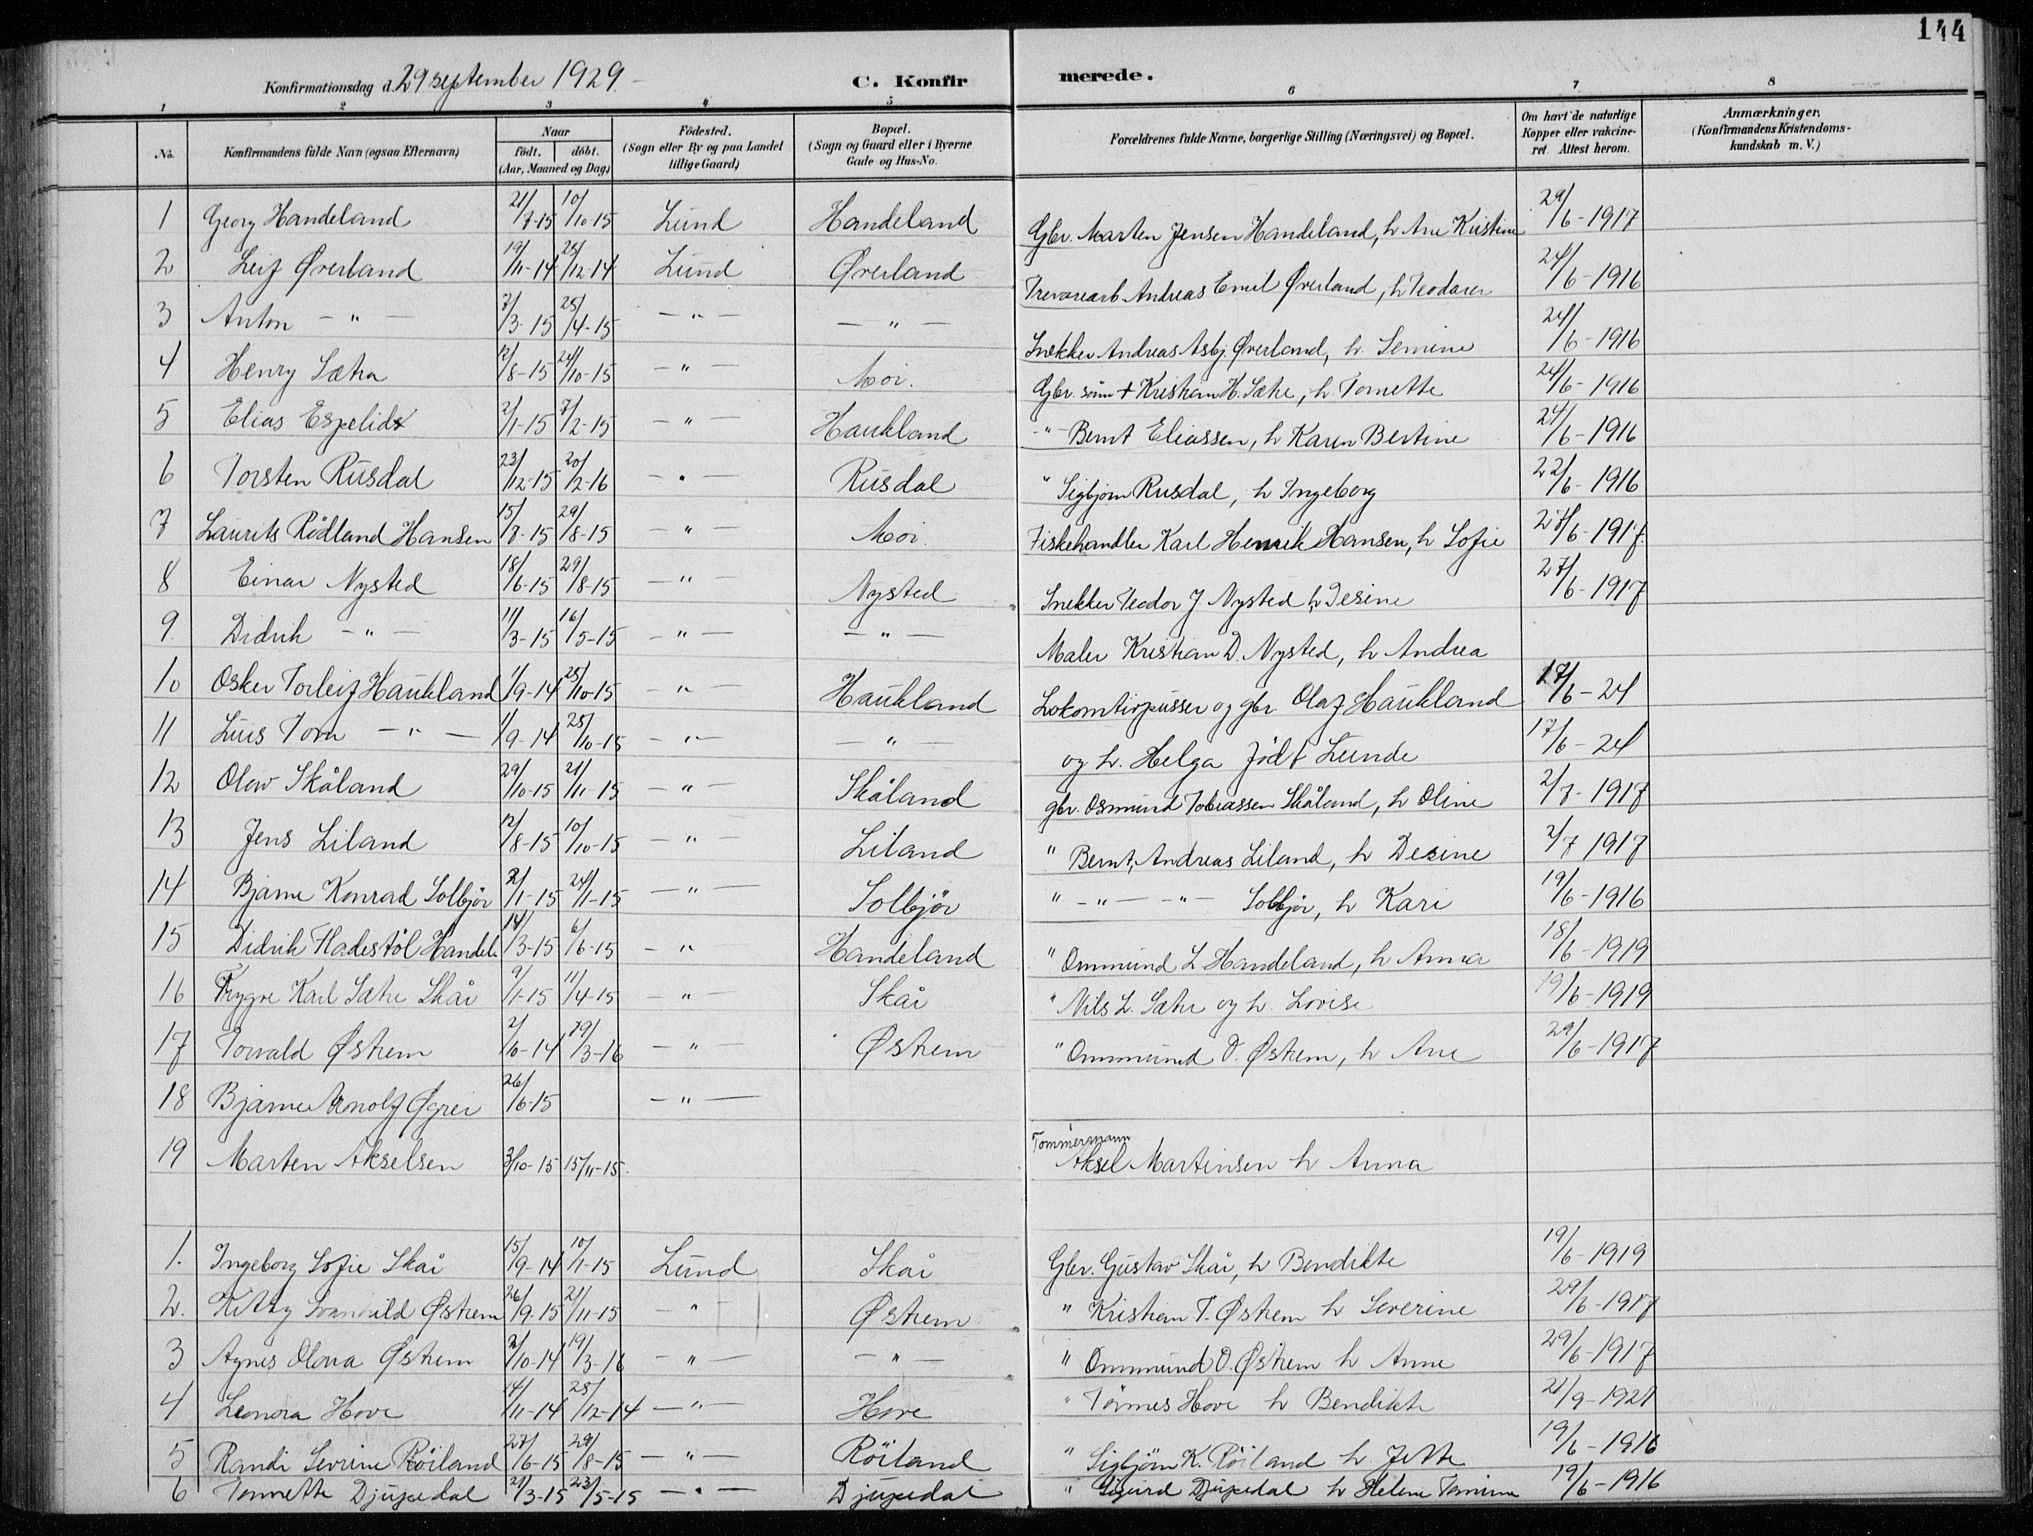 144
Konfirmationsdag d. 29 september 1929.
C. Konfirmerede.
1 2 3 4 5 6 7 8
No. Konfirmandens fulde Navn (ogsaa Efternavn) Naar født. døbt. (Aar, Maaned og Dag) Fødested. (Sogn eller By og paa Landet tillige Gaard) Bopæl. (Sogn og Gaard eller i Byerne Gade og Hus-No. Forældrenes fulde Navne, borgerlige Stilling (Næringsvei) og Bopæl. Om havt de naturlige Kopper eller vakcineret. Attest herom. Anmærkninger, (Konfirmandens Kristendomskundskab m. V.)
1 Georg Handeland 21/7-15 10/10-15 Lund Handeland Gbr. Marten Jensen Handeland, h Ane Kristine 29/6-1917
2 Leif Øverland 19/11-14 25/12-14 Lund Øverland Trevarearb. Andreas Emil Øverland, h Teodora 24/6-1916
3 Anton - " - 7/3-15 25/4-15 - " - - " - Snekker Andreas Asbj. Øverland, h. Semine 24/6-1916
4 Henry Sætra 12/8-15 24/10-15 - " - Moi. Gbr. sønn + Kristian H. Sætre, h. Tomette 24/6-1916
5 Elias Espelid 2/1-15 7/2-15 - " Haukland - " - Bernt Eliassen, h Karen Bertine 24/6-1916
6 Torsten Rusdal 23/12-15 20/2-16 - " - Rusdal " Sigbjørn Rusdal, h Ingeborg 22/6-1916
7 Laurits Rødland Hansen 15/7-15 29/8-15 - " Moi. Fiskehandler Karl Henrik Hansen, h Sofie 27/6-1917
8 Einar Nysted 18/6-15 29/8-15 - " - Nysted Snekker Teodor J Nysted h Desine 27/6-1917
9. Didrik - " - 11/3-15 16/5-15 - " - - " - Maler Kristian D. Nysted, h Andrea
10 Osker Torleif Haukland 1/9-14 25/10-15 - " - Haukland Lokomtivpusser og gbr. Olaf Haukland 17/6-24
11 Luis Tom - " - 1/9-14 25/10-15 - " - - " - og h. Helga født Lunde 17/6-24
12 Olav Skåland 29/10-15 21/11-15 - " - Skåland gbr. Osmund Tobiassen Skåland, h Oline 2/7-1917
13 Jens Liland 12/8-15 10/10-15 - " Liland " Bernt Andreas Liland, h Desine 2/7 1917
14 Bjarne Konrad Solbjør 2/1-15 24/1-15 - " - Solbjør " - " - - " - Solbjør, h Kari 19/6-1916
15 Didrik Fladestøl Handel. 14/3-15 6/6-15 - " Handeland " Ommund L Handeland, h Anna 18/6-1919
16 Trygve Karl Sætre Skår 9/1-15 11/4-15 - " - Skår " Nils L. Sætre og h. Lovise 19/6-1919
17 Torvald Østrem 2/10-14 19/3-16 - " - Østrem " Ommund O. Østrem, h Ane 29/6-1917
18 Bjarne Arnolf Øgrei 26/6-15 - " -
19 Marten Akselsen 3/10-15 15/11-15. Tømmermann Aksel Martinsen h Anna
1. Ingeborg Sofie Skår 15/9-14 10/1-15 Lund Skår Gbr. Gustav Skår, h Bendikte 19/6-1919
2. Kitty Svanvild Østrem 26/9-15 21/11-15 - " - Østrem " Kristian T. Østrem h Severine 29/6-1917
3 Agnes Olova Østrem 2/10-14 19/3-16 - " - - " - " Ommund O. Østrem h Anne 29/6-1917
4 Leonora Hove 14/11-14 25/12-14 - " - Hove " Tønnes Hove h Bendikte 21/9-1921
5 Randi Sevrine Røiland 27/6-15 29/8-15 - " - Røiland " Sigbjørn K. Røiland h. Jette 19/6-1916
6 Tomette Djupedal 21/3-15 23/5-15 - " - Djupedal " Sigurd Djupedal h Helene Tomine 19/6-1916